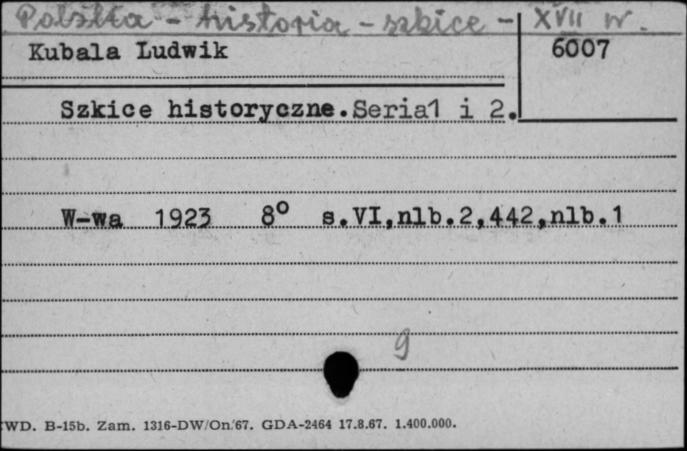 Polska - historia - szkice - XVII w.
Kubala Ludwik
6007
Szkice historyczne. Seria1 i 2.
W-wa 1923 8° s.VI,nlb.2,442,nlb.1
9
WD. B-15b. Zam. 1316-DW/On/67. GDA-2464 17.8.67. 1.400.000.